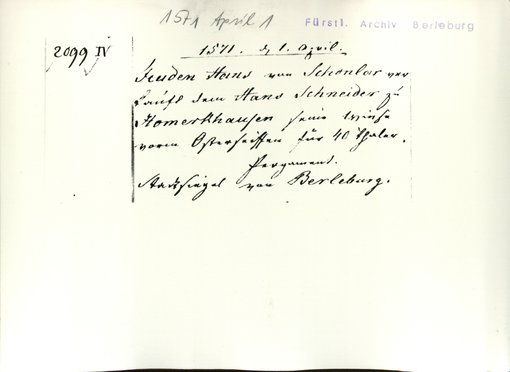 1571 April 1
Fürstl. Archiv Berleburg
2099 IV
1571. d. 1. April.
Hans von Schonlar ver
kauft dem Hans Schneider zu
Homerkhausen seine Wiese
vorm Osterseiffen für 40 Thaler.
Pergament.
Stadtsiegel von Berleburg.